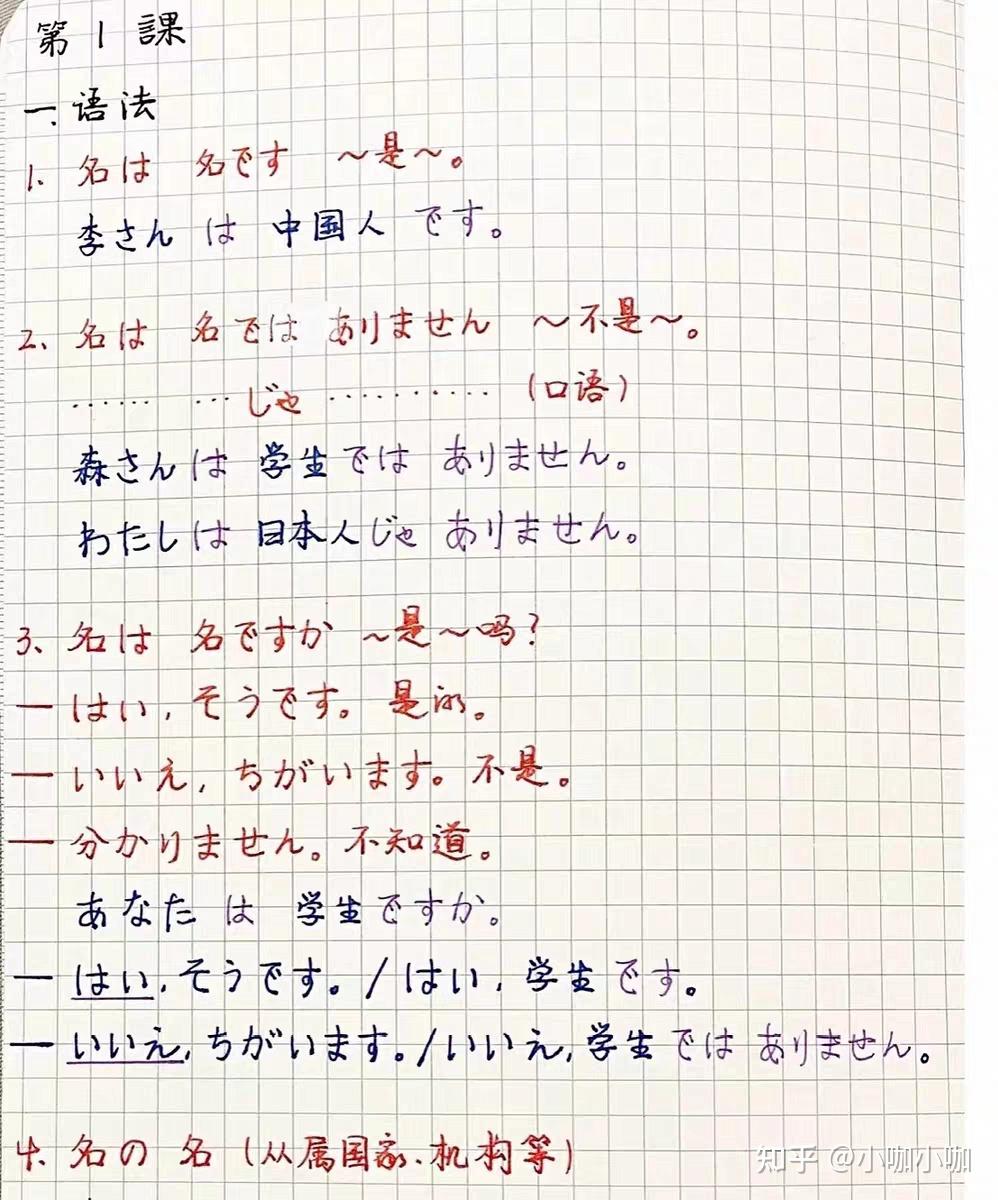 第1課
一、语法
1、名は 名です ～是～。
李さん は 中国人 です。
2、名は 名では ありません ～不是～。
…… … じゃ ………… (口语)
森さんは 学生では ありません。
わたしは 日本人じゃ ありません。
3、名は 名ですか ～是～吗?
— はい, そうです。 是的。
— いいえ, ちがいます。不是。
— 分かりません。不知道。
あなた は 学生ですか。
— はい, そうです。/はい, 学生です。
— いいえ, ちがいます。/いいえ, 学生では ありません。
4、名の 名 (从属国家、机构等)
知乎 @小咖小咖